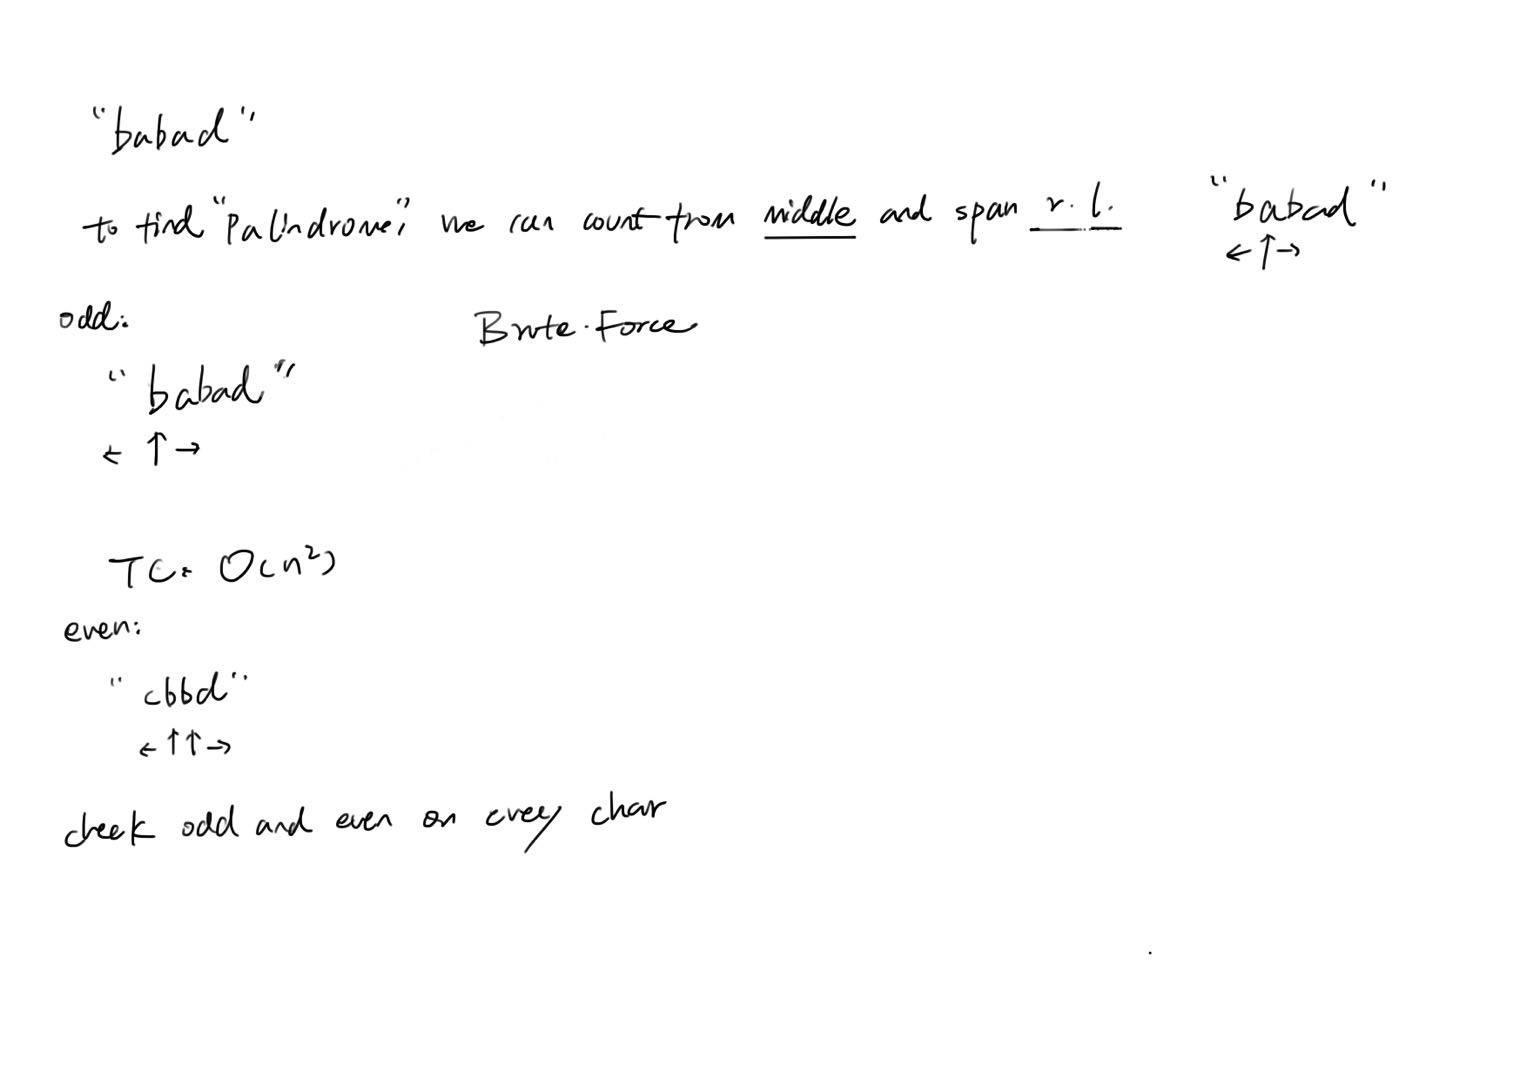 "babad"
to find "Palindrome", we can count from middle and span r. l. "babad"
← ↑ →
odd: Brute-Force
"babad"
← ↑ →
TC: O(n²)
even:
"cbbd"
← ↑ ↑ →
check odd and even on every char